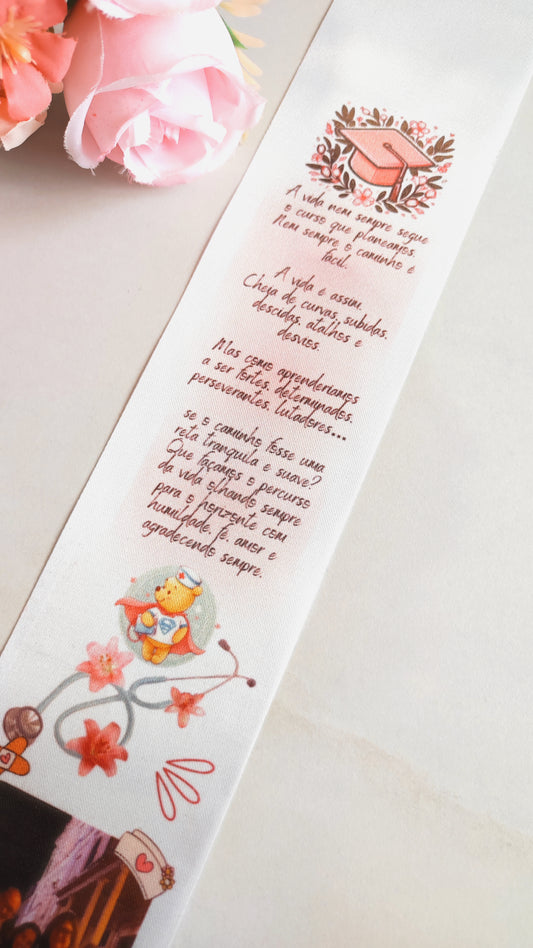 A vida nem sempre segue
o curso que planeamos.
Nem sempre o caminho é
fácil.
A vida é assim.
Cheia de curvas, subidas,
descidas, atalhos e
desvios.
Mas como aprenderíamos
a ser fortes, determinados,
perseverantes, lutadores...
se o caminho fosse uma
reta tranquila e suave?
Que façamos o percurso
da vida olhando sempre
para o horizonte com
humildade, fé, amor e
agradecendo sempre.